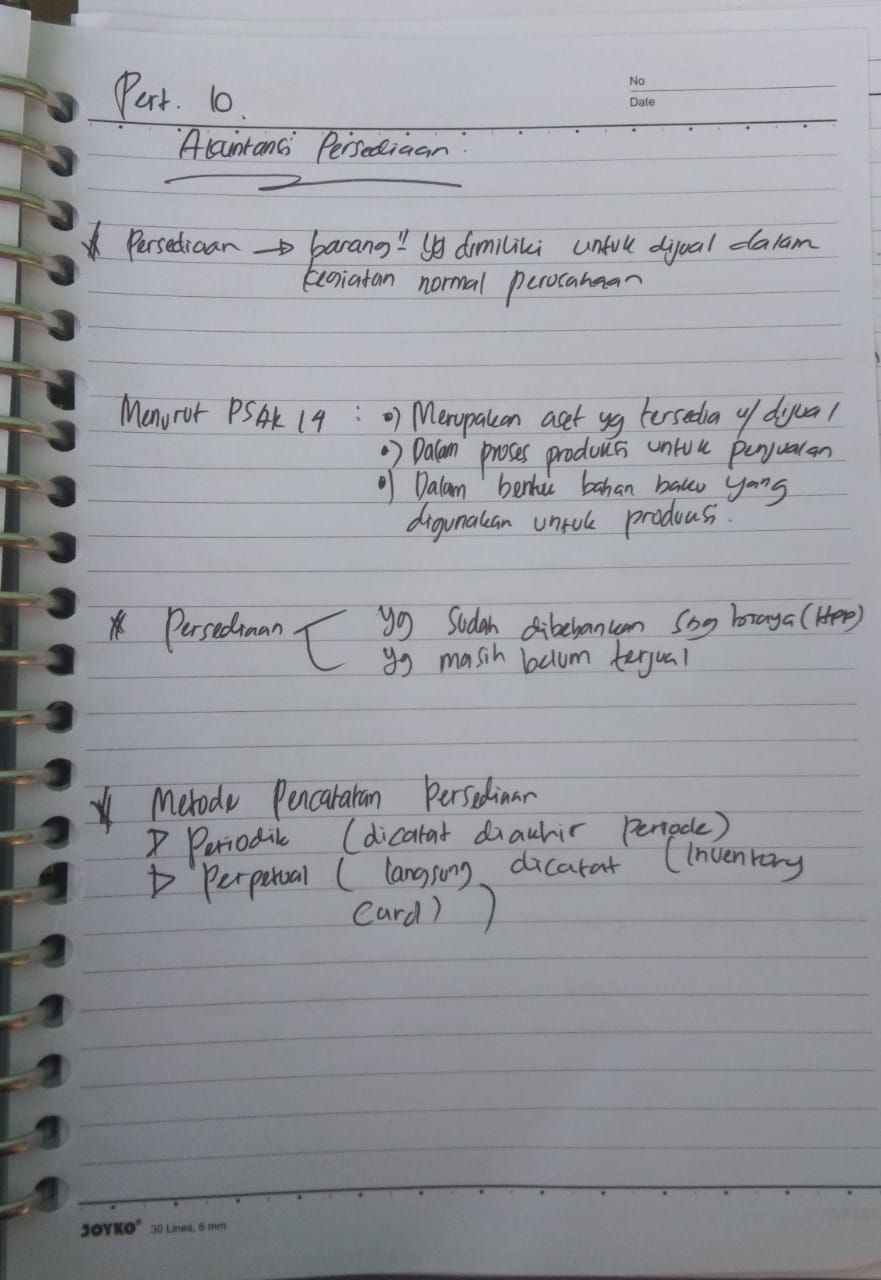 Pert. 10.
No
Date
Akuntansi Persediaan.
* Persediaan → barang" yg dimiliki untuk dijual dalam
kegiatan normal perusahaan
Menurut PSAK 14 : •) Merupakan aset yg tersedia u/ dijual
•) Dalam proses produksi untuk penjualan
•) Dalam bentuk bahan baku yang
digunakan untuk produksi.
* Persediaan yg sudah dibebankan sbg biaya (HPP)
yg masih belum terjual
* Metode Pencatatan Persediaan
▷ Periodik (dicatat diakhir periode)
▷ Perpetual ( langsung dicatat (Inventory
Card) )
JOYKO® 30 Lines, 6 mm